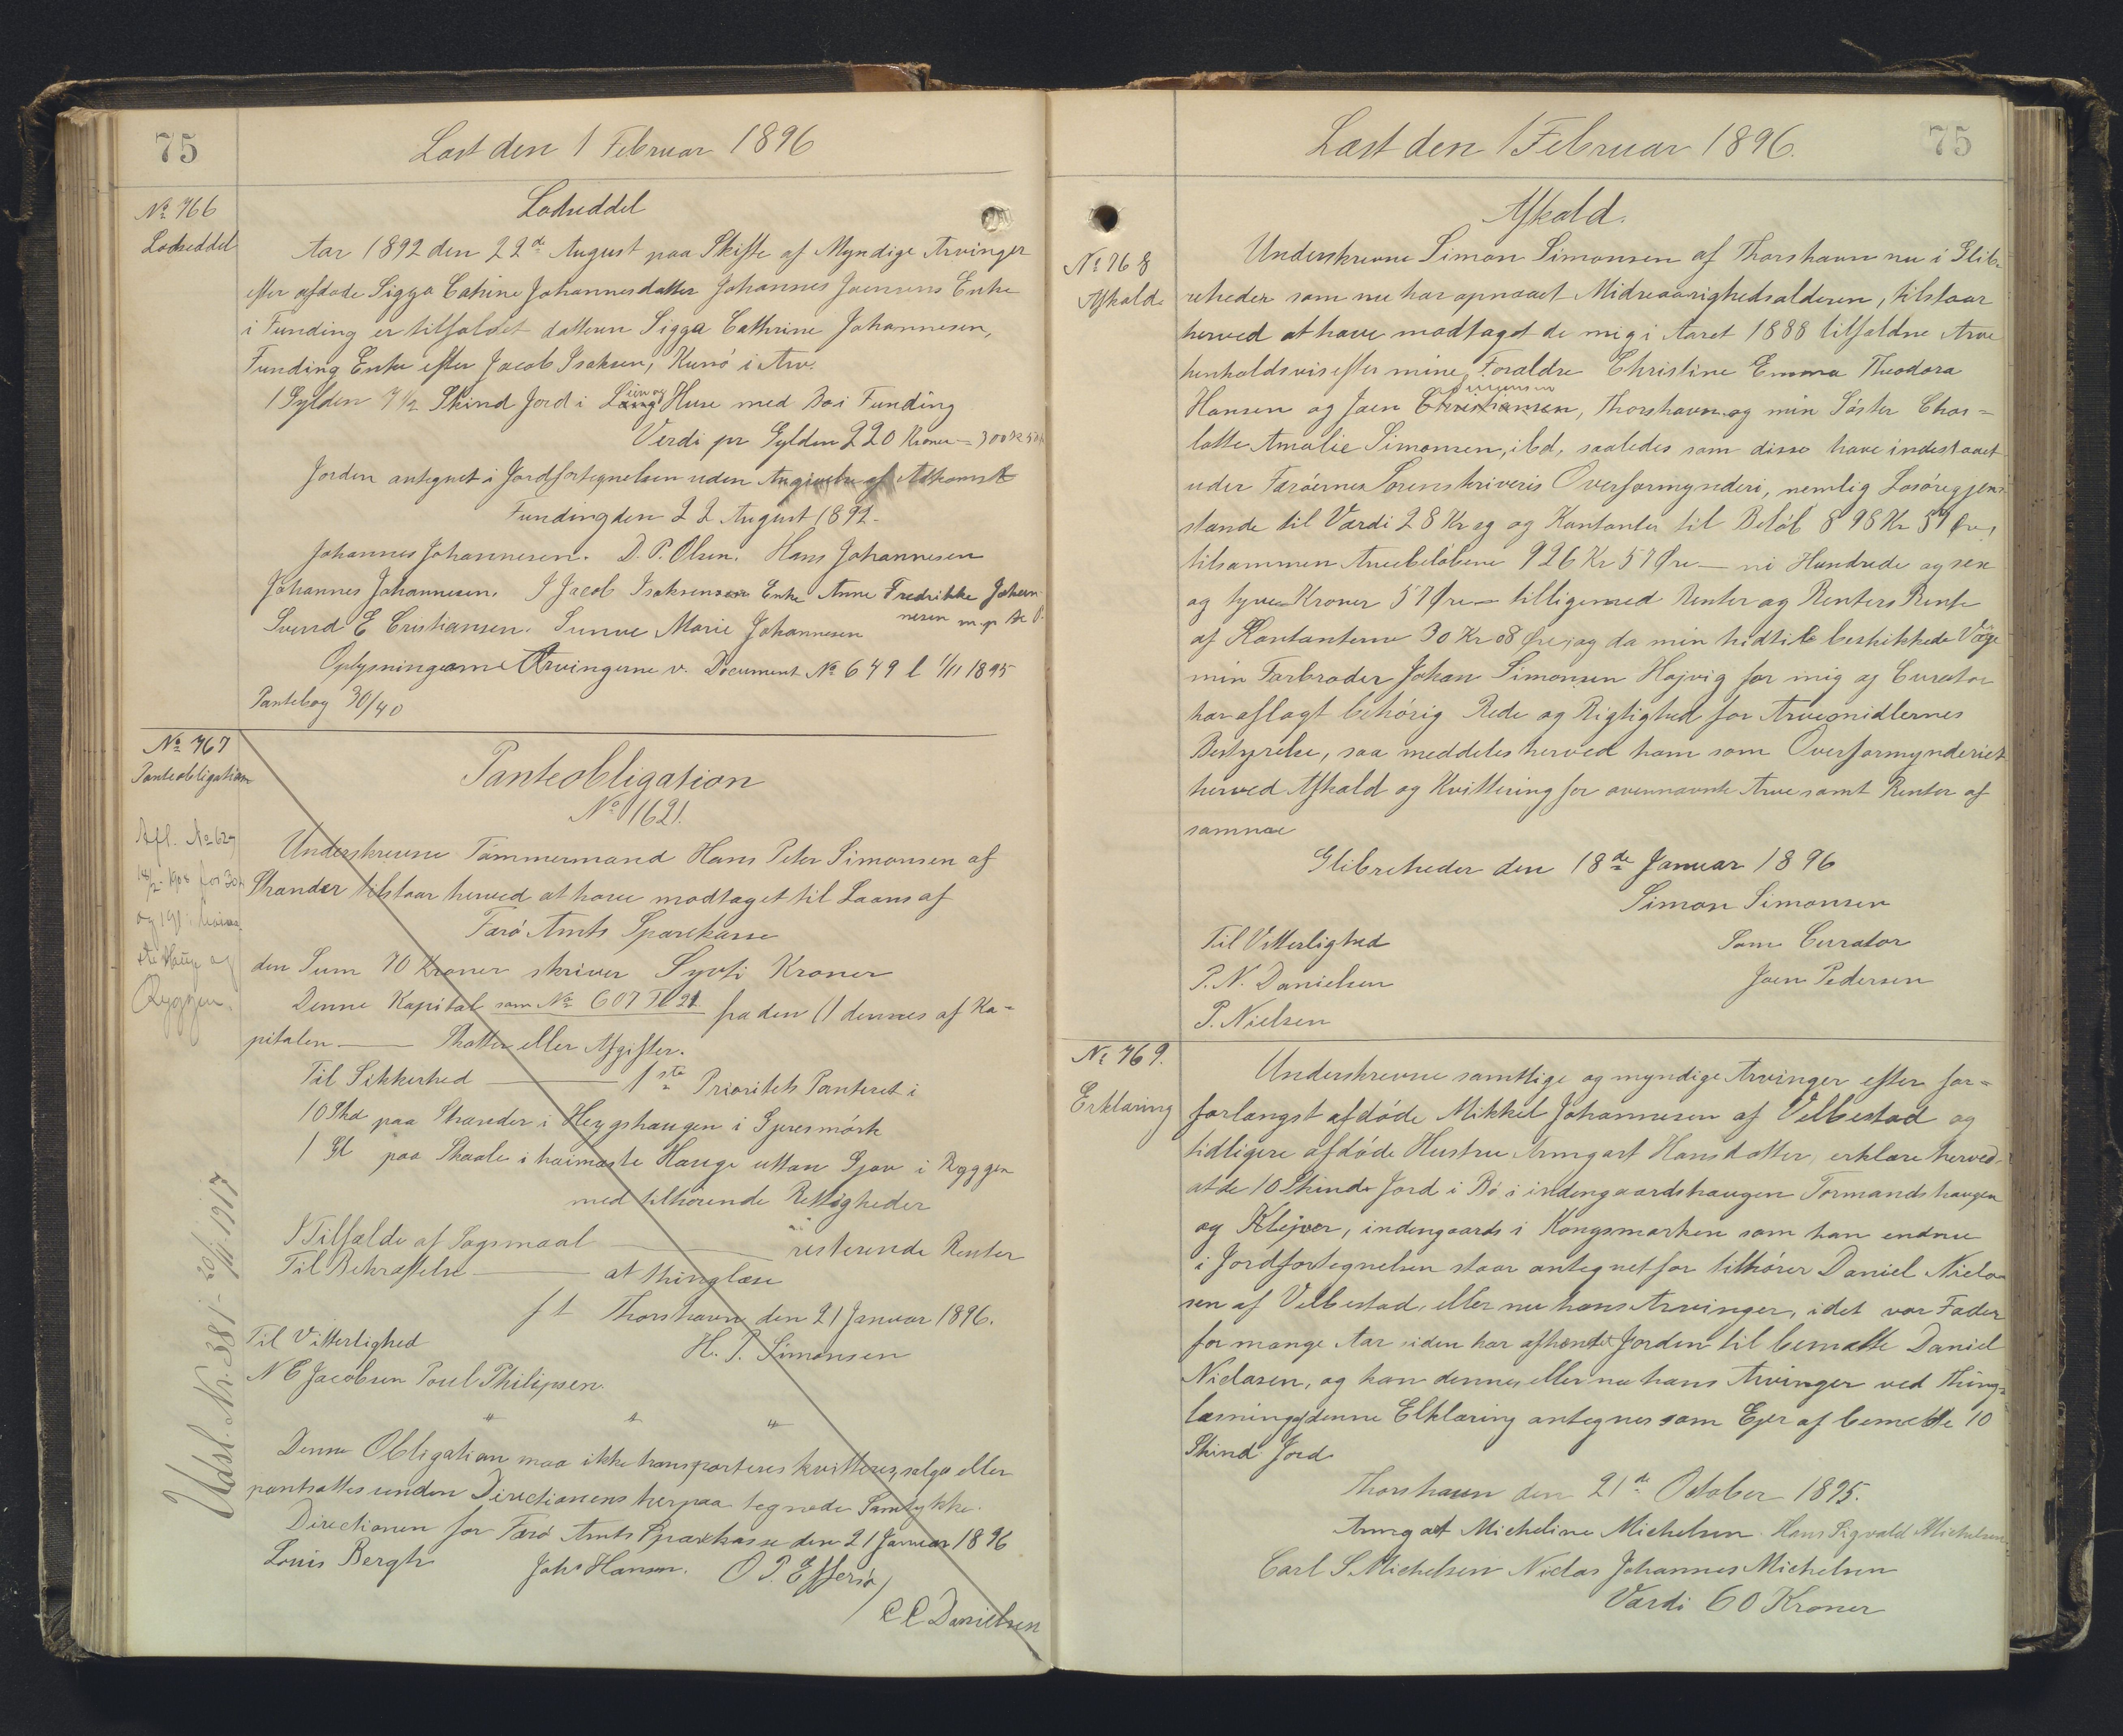 75
Læst den 1 Februar 1896
No 766
Lodseddel
Lodseddel
Aar 1892 den 22de August paa Skifte af Myndige Arvinger
efter afdøde Sigga Cathrine Johannesdatter Johannes Joensens Enke
i Funding er tilfaldet datteren Sigga Cathrine Johannesen,
Funding Enke efter Jacob Isaksen, Kunø i Arv.
1 Gylden 7 1/2 Skind Jord i Huse med Bø i Funding
Verdi pr Gylden 220 Kroner = 300 K 50
Jorden antegnet i Jordfortegnelsen uden Angivelse af Adkomst
Funding den 22 August 1892.
Johannes Johannesen. D. P. Olsen. Hans Johannesen
Johannes Johannesen. J Jacob Isaksensen Enke Anne Fredrikke Johan
nesen m. p.
Svend E Cristiansen. Sunne Marie Johannesen
Oplysning om Arvingerne v. Document No 649 l 1/11 1895
Pantebog 30/40
No 767
Panteobligation
Afl. No 629
og
Ryggen.
Udsl. Nr. 381 - 20/11 1917
Panteobligation
No 1621.
Underskrevne Tømmermand Hans Peter Simonsen af
Strander tilstaar herved at have modtaget til Laans af
Færø Amts Sparekasse
den Sum 70 Kroner skriver Syvti Kroner
Denne Kapital som No 607 fra den 11 dennes af Ka-
pitalen — Skatter eller Afgifter.
Til Sikkerhed — 1ste Prioritets Panteret i
10 Skd paa Strænder i Heygshaugen i Gjresmørk
1 Gl paa Skaale i haimaste Hauge uttan Gjov i Rygggen
med tilhørende Rettigheder
I Tilfælde af Søgsmaal — resterende Renter
Til Bekræftelse — at thinglæse
f t Thorshavn den 21 Januar 1896.
Til Vitterlighed
H. P. Simonsen
N E Jacobsen Poul Philipsen.
" " "
Denne Obligation maa ikke transporteres kvitteres, sælges eller
pantsættes unden Directionens herpaa tegnede Samtykke.
Directionen for Færø Amts Sparekasse den 21 Januar 1896
Louis Bergh Johs Hansen. O P. Effersø/
C C Danielsen
Læst den 1 Februar 1896.
75
No 768
Afkald
Afkald.
Underskrevne Simon Simonsen af Thorshavn nu i Glib-
reheder som nu har opnaaet Midreaarighedsalderen, tilstaar
herved at have modtaget de mig i Aaret 1888 tilfaldne Arve
henholdsvis efter mine Forældre Christine Emma Theodora
Simonsen
Hansen og Joen Christiansen, Thorshavn og min Søster Char-
lotte Amalie Simonsen, ibd, saaledes som disse have indestaaet
under Færøernes Sorenskriveris Overformynderi, nemlig Løsøregjen-
stande til Værdi 28 Kr og og Kontanter til Beløb 898 Kr 57 Øre,
tilsammen Arvebeløbene 926 Kr 57 Øre — ni Hundrede og sex
og tyve Kroner 57 Øre — tilligemed Renter og Renters Rente
af Kontanterne 30 Kr 08 Øre, og da min hidtil beskikkede Værge
min Farbroder Johan Simonsen Hojvig for mig og Curator
har aflagt behørig Rede og Rigtighed for Arvemidlernes
Bestyrelse, saa meddeles herved ham som Overformynderiet
herved Afkald og Kvittering for ovennævnte Arve samt Renter af
samme
Glibreheder den 18de Januar 1896
Simon Simonsen
Til Vitterlighed
Som Currator
P. N. Danielsen
Joen Pedersen
P. Nielsen
No 769.
Erklæring
Underskrevne samtlige og myndige Arvinger efter for-
forlængst afdøde Mikkel Johannesen af Velbestad og
tidligere afdøde Hustru Armgart Hansdatter, erklære herved
at de 10 Skinds Jord i Bø i indengaardshaugen Tormandshaugen
og Klejver, indengaards i Kongsmarken som han endnu
i Jordfortegnelsen staar antegnet for tilhører Daniel Niela-
sen af Velbestad, eller nu hans Arvinger, idet vor Fader
for mange Aar siden har afhændet Jorden til bemeldte Daniel
Nielasen, og kan dennes eller nu hans Arvinger ved Thing-
læsning af denne Elklæring antegnes som Ejer af bemeldte 10
Skind Jord
Thorshavn den 21de October 1895.
Armgart Micheline Michelsen. Hans Sigvald Michelsen.
Carl S. Michelsen Niclas Johannes Michelsen
Værdi 60 Kroner